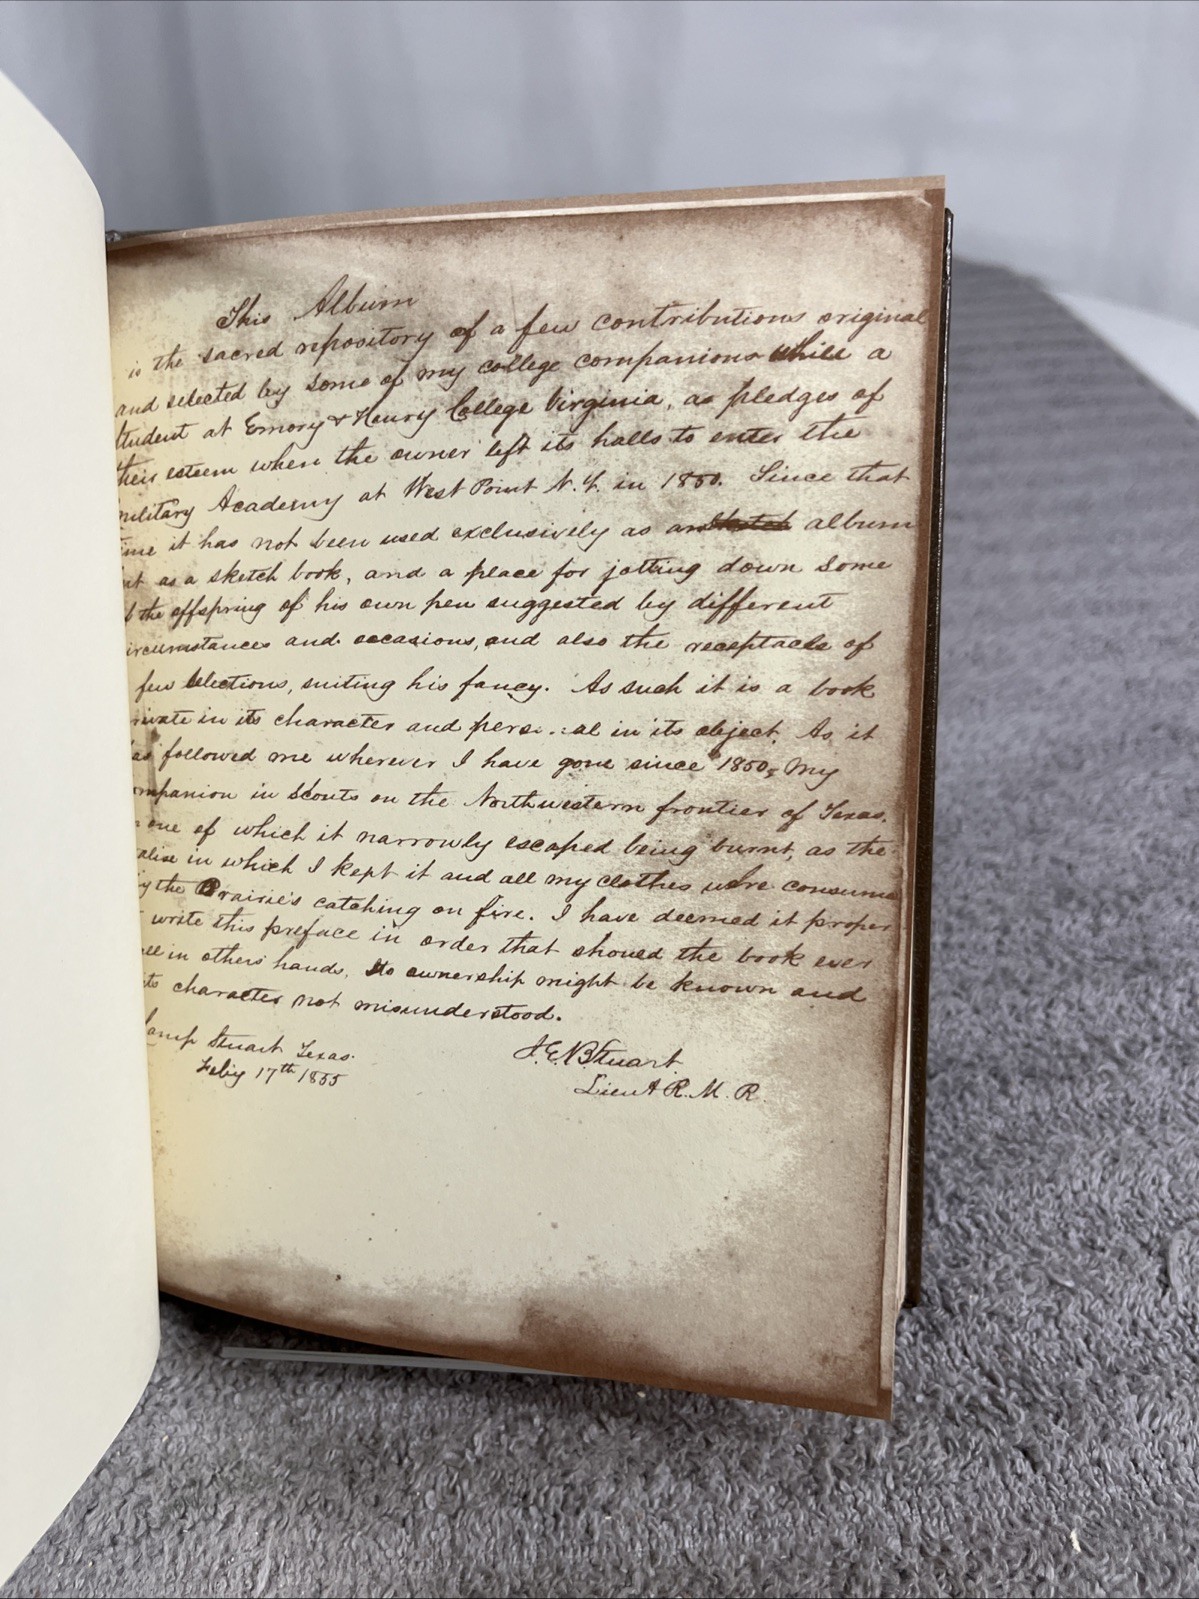 This Album
is the sacred repository of a few contributions original
and selected by some of my college companions while a
student at Emory & Henry College Virginia, as pledges of
their esteem when the owner left its halls to enter the
military Academy at West Point N.Y. in 1850. Since that
ime it has not been used exclusively as an album
ut as a sketch book, and a place for jotting down some
f the offspring of his own pen suggested by different
ircumstances and occasions, and also the receptacle of
few selections, suiting his fancy. As such it is a book
rivate in its character and pers..al in its object. As it
as followed me wherever I have gone since 1850, My
ompanion in Scouts on the Northwestern frontier of Texas.
n one of which it narrowly escaped being burnt, as the
alise in which I kept it and all my clothes were consume
y the Prairie's catching on fire. I have deemed it proper
write this preface in order that should the book ever
all in others' hands, its ownership might be known and
its character not misunderstood.
Camp Stuart Texas.
Feb'y 17th 1855
J.E.B Stuart.
Lieut R. M. R.